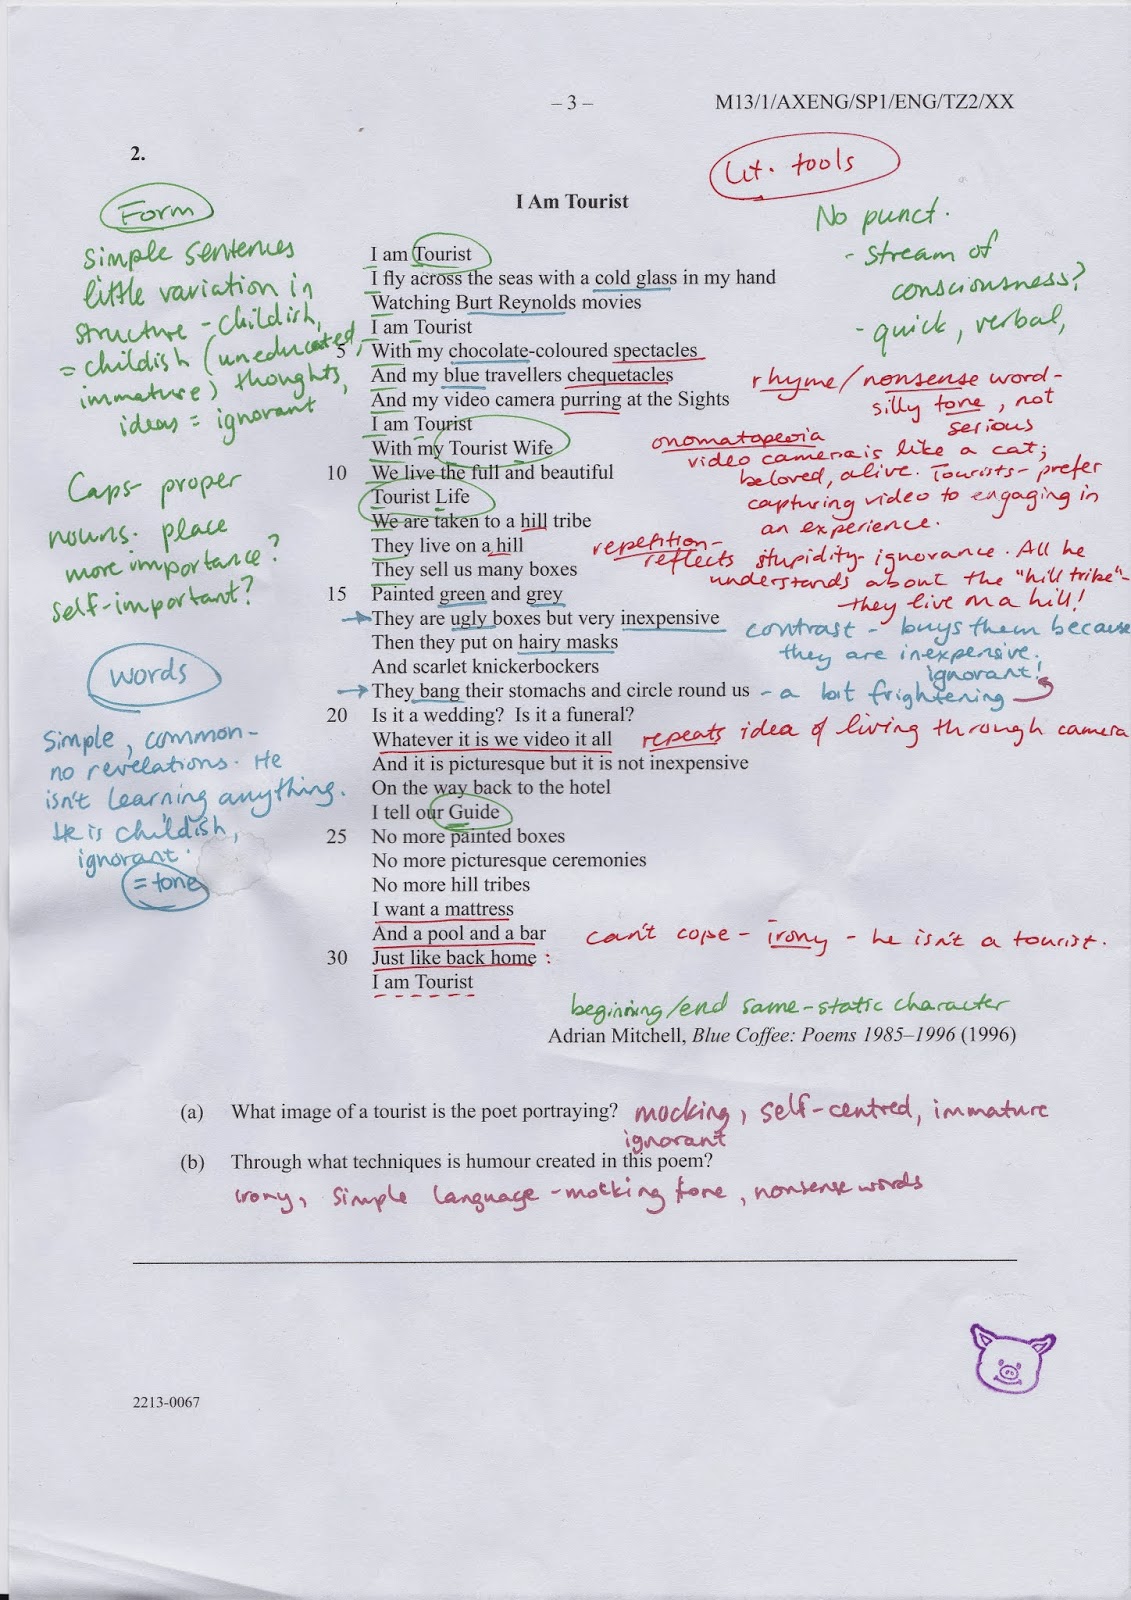 – 3 –
M13/1/AXENG/SP1/ENG/TZ2/XX
2.
Lit. tools
I Am Tourist
Form
simple sentences
little variation in
structure - childish,
= childish (uneducated,
immature) thoughts,
ideas = ignorant
Caps - proper
nouns. place
more importance?
self-important?
words
simple, common -
no revelations. He
isn't learning anything.
He is childish,
ignorant.
= tone
I am Tourist
I fly across the seas with a cold glass in my hand
Watching Burt Reynolds movies
I am Tourist
5 With my chocolate-coloured spectacles
And my blue travellers chequetacles
And my video camera purring at the Sights
I am Tourist
With my Tourist Wife
10 We live the full and beautiful
Tourist Life
We are taken to a hill tribe
They live on a hill
They sell us many boxes
15 Painted green and grey
They are ugly boxes but very inexpensive
Then they put on hairy masks
And scarlet knickerbockers
They bang their stomachs and circle round us
20 Is it a wedding? Is it a funeral?
Whatever it is we video it all
And it is picturesque but it is not inexpensive
On the way back to the hotel
I tell our Guide
25 No more painted boxes
No more picturesque ceremonies
No more hill tribes
I want a mattress
And a pool and a bar
30 Just like back home :
I am Tourist
No punct.
- stream of
consciousness?
- quick, verbal,
rhyme/nonsense word -
silly tone, not
serious
onomatopoeia
video camera is like a cat;
beloved, alive. Tourists - prefer
capturing video to engaging in
an experience.
repetition -
reflects stupidity - ignorance. All he
understands about the "hill tribe" -
they live on a hill!
contrast - buys them because
they are inexpensive.
ignorant!
- a bit frightening
repeats idea of living through camera
can't cope - irony - he isn't a tourist.
beginning/end same - static character
Adrian Mitchell, Blue Coffee: Poems 1985–1996 (1996)
(a) What image of a tourist is the poet portraying? mocking, self-centred, immature
ignorant
(b) Through what techniques is humour created in this poem?
irony, simple language - mocking tone, nonsense words
2213-0067